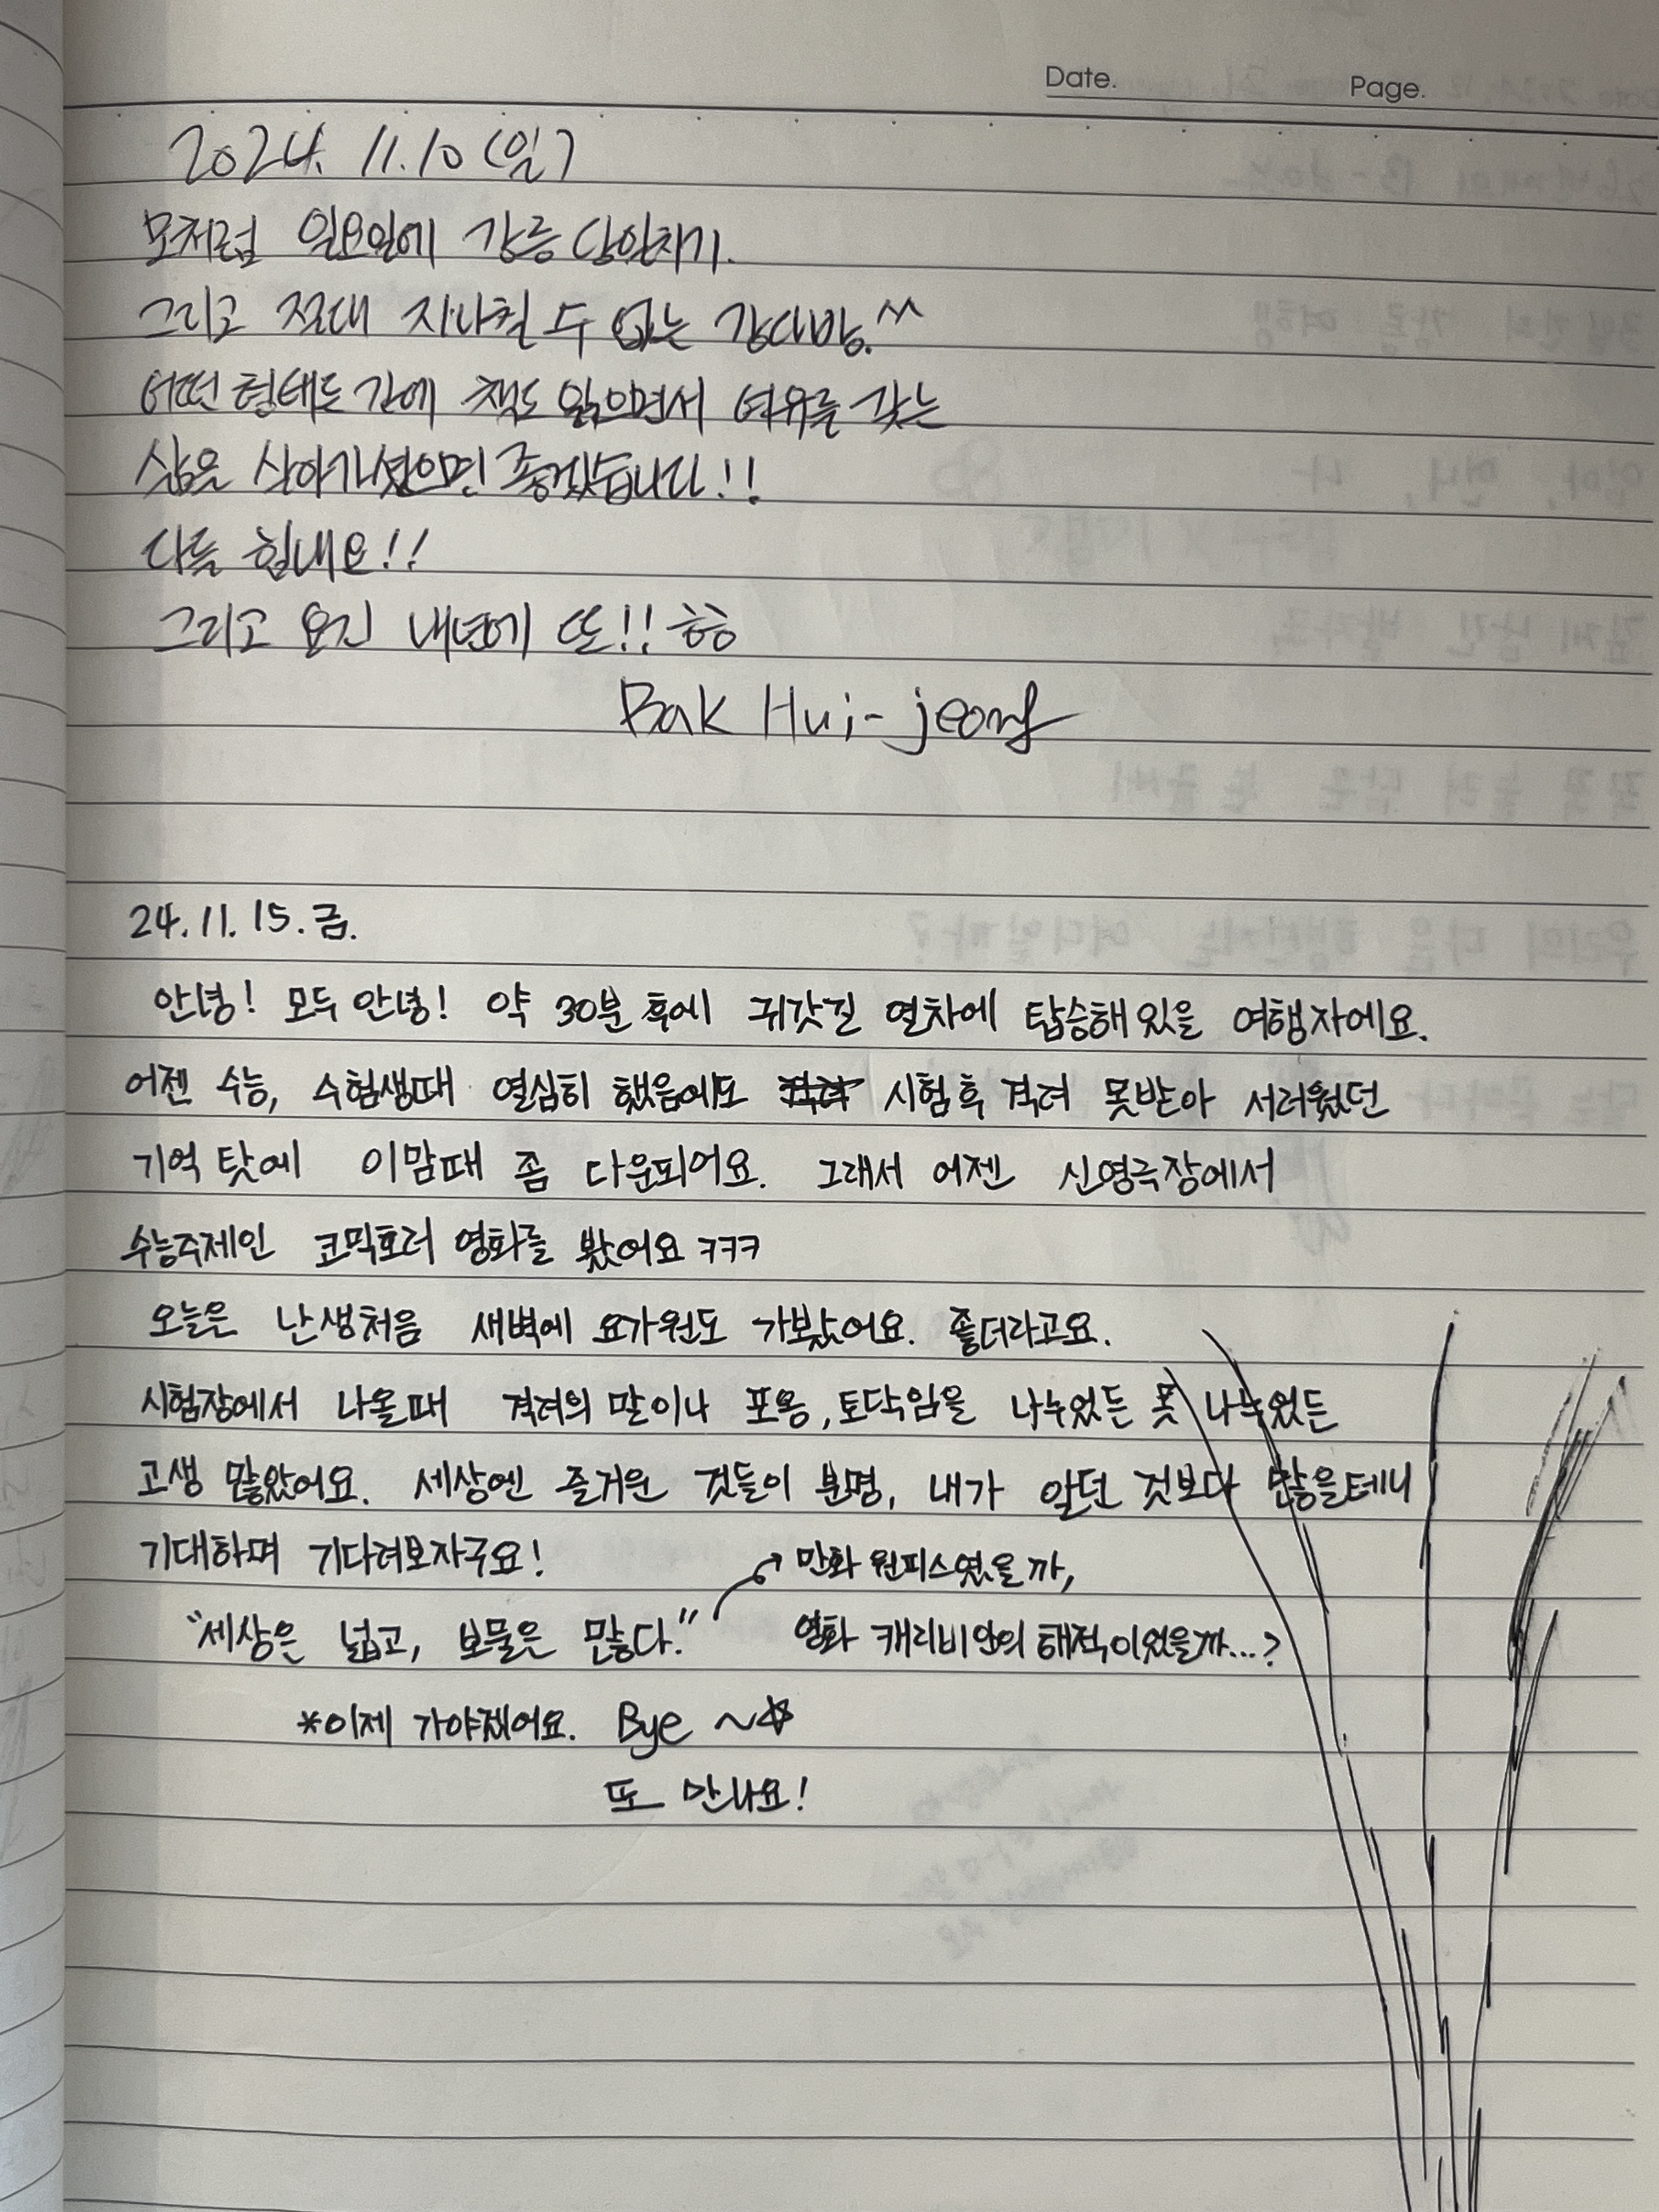 Date. Page.
2024. 11. 10 (일)
모처럼 일요일에 강릉 당일치기.
그리고 절대 지나칠 수 없는 강다방.^^
어떤 형태든 간에 책도 읽으면서 여유를 갖는
삶을 살아가셨으면 좋겠습니다!!
다들 힘내요!!
그리고 요긴 내년에 또!! 흐흐
Bak Hui-jeong
24. 11. 15. 금.
안녕! 모두 안녕! 약 30분 후에 귀갓길 열차에 탑승해있을 여행자에요.
어젠 수능, 수험생때 열심히 했음에도 시험후 격려 못받아 서러웠던
기억 탓에 이맘때 좀 다운되어요. 그래서 어젠 신영극장에서
수능주제인 코믹호러 영화를 봤어요 ㅋㅋㅋ
오늘은 난생처음 새벽에 요가원도 가봤어요. 좋더라고요.
시험장에서 나올때 격려의 말이나 포옹, 토닥임을 나누었든 못 나누었든
고생 많았어요. 세상엔 즐거운 것들이 분명, 내가 알던 것보다 많을테니
기대하며 기다려보자구요!
"세상은 넓고, 보물은 많다."
만화 원피스였을까,
영화 캐리비안의 해적이었을까...?
*이제 가야겠어요. Bye ~☆
또 만나요!